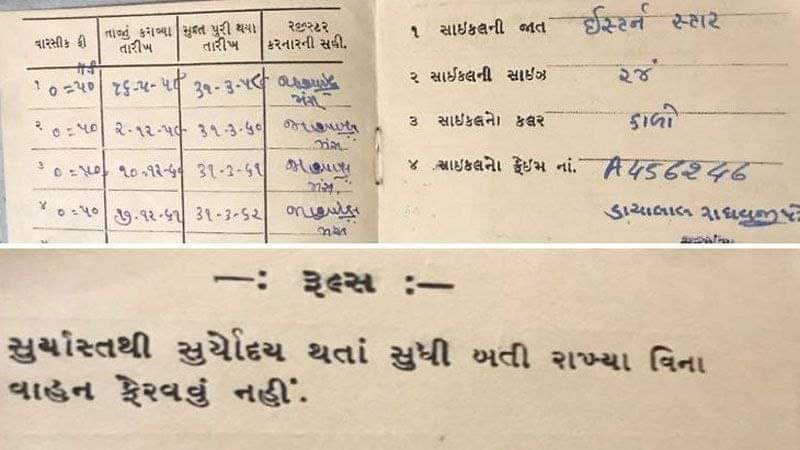 વારસીક ફી તાજું કરાવ્યા તારીખ મુદત પુરી થયા તારીખ રજીસ્ટર કરનારની સહી.
૧ ૦=૫૦ ૩૧-૩-૫૯
૨ ૦=૫૦ ૨-૧૨-૫૯ ૩૧-૩-૬૦
૩ ૦=૫૦ ૧૦-૧૨-૬૦ ૩૧-૩-૬૧
૪ ૦=૫૦ ૧૭-૧૨-૬૧ ૩૧-૩-૬૨
૧ સાઇકલની જાત ઈસ્ટર્ન સ્ટાર
૨ સાઇકલની સાઇઝ ૨૨ાં
૩ સાઇકલનો કલર કાળો
૪ સાઇકલનો ફ્રેઇમ નાં. A456246
ડાયાલાલ રાઘવજી
—: રૂલ્સ :—
સુર્યાસ્તથી સુર્યોદય થતાં સુધી બતી રાખ્યા વિના
વાહન ફેરવવું નહીં.